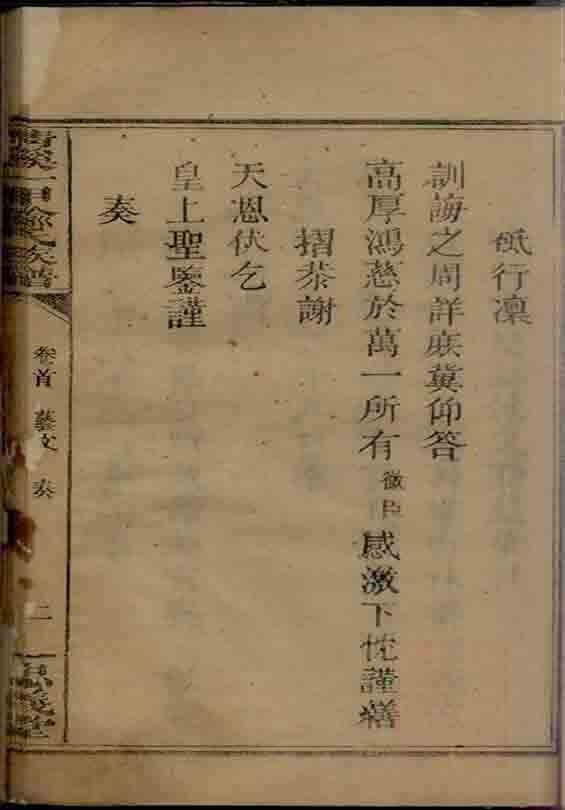 砥行凜
訓誨之周詳庶冀仰答
高厚鴻慈於萬一所有微臣感激下忱謹繕
摺恭謝
天恩伏乞
皇上聖鑒謹
奏
氏族譜
卷首 藝文 奏 二
義堂